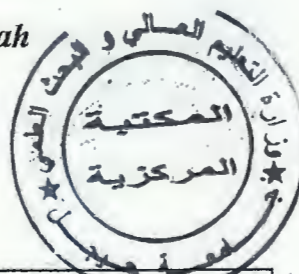 ah
وزارة التعليم العالي و البحث العلمي
المكتبة
المركزية